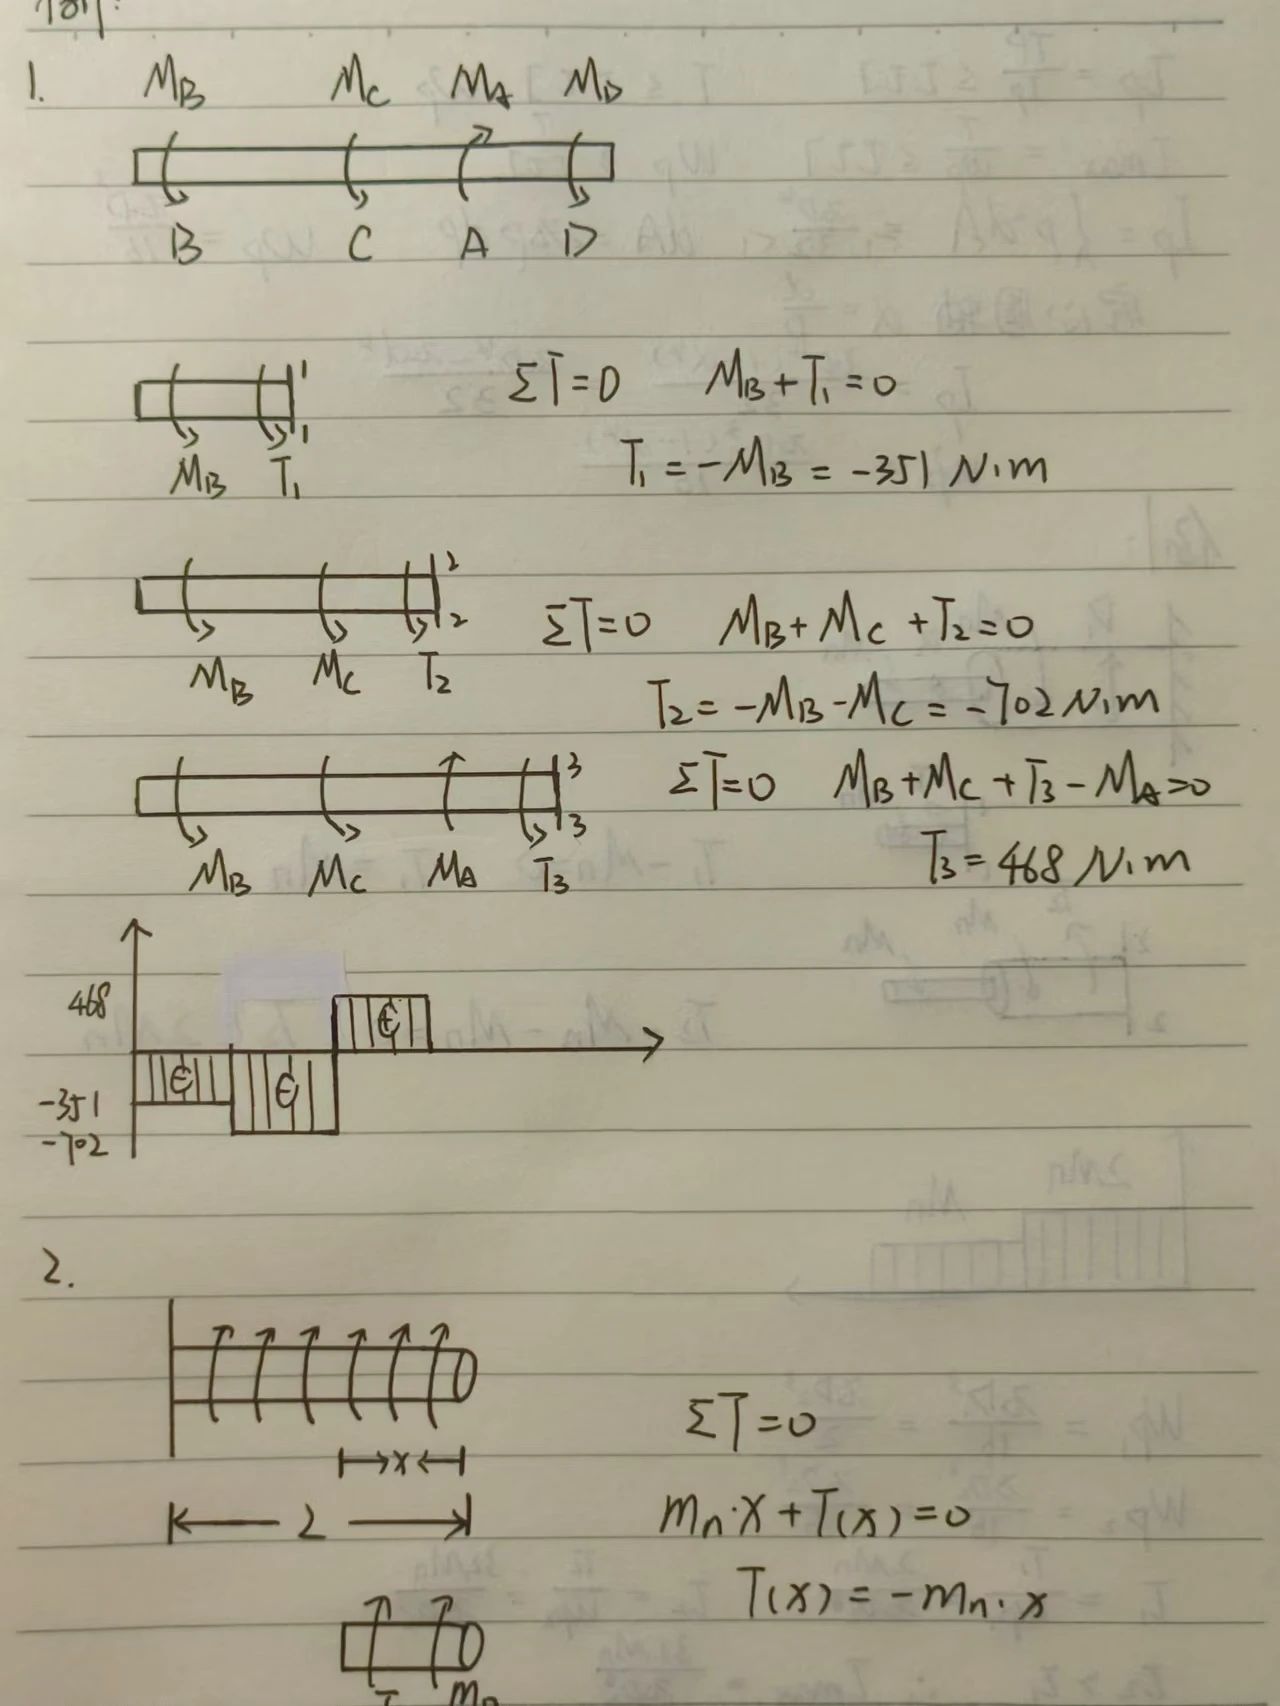 1.
M_B M_C M_A M_D
B C A D
1
1
ΣT=0 M_B+T_1=0
M_B T_1
T_1=-M_B=-351 N·m
2
2
ΣT=0 M_B+M_C+T_2=0
M_B M_C T_2
T_2=-M_B-M_C=-702 N·m
3
3
ΣT=0 M_B+M_C+T_3-M_A=0
M_B M_C M_A T_3
T_3=468 N·m
468
-351
-702
2.
ΣT=0
x
L
m_n·x+T(x)=0
T(x)=-m_n·x